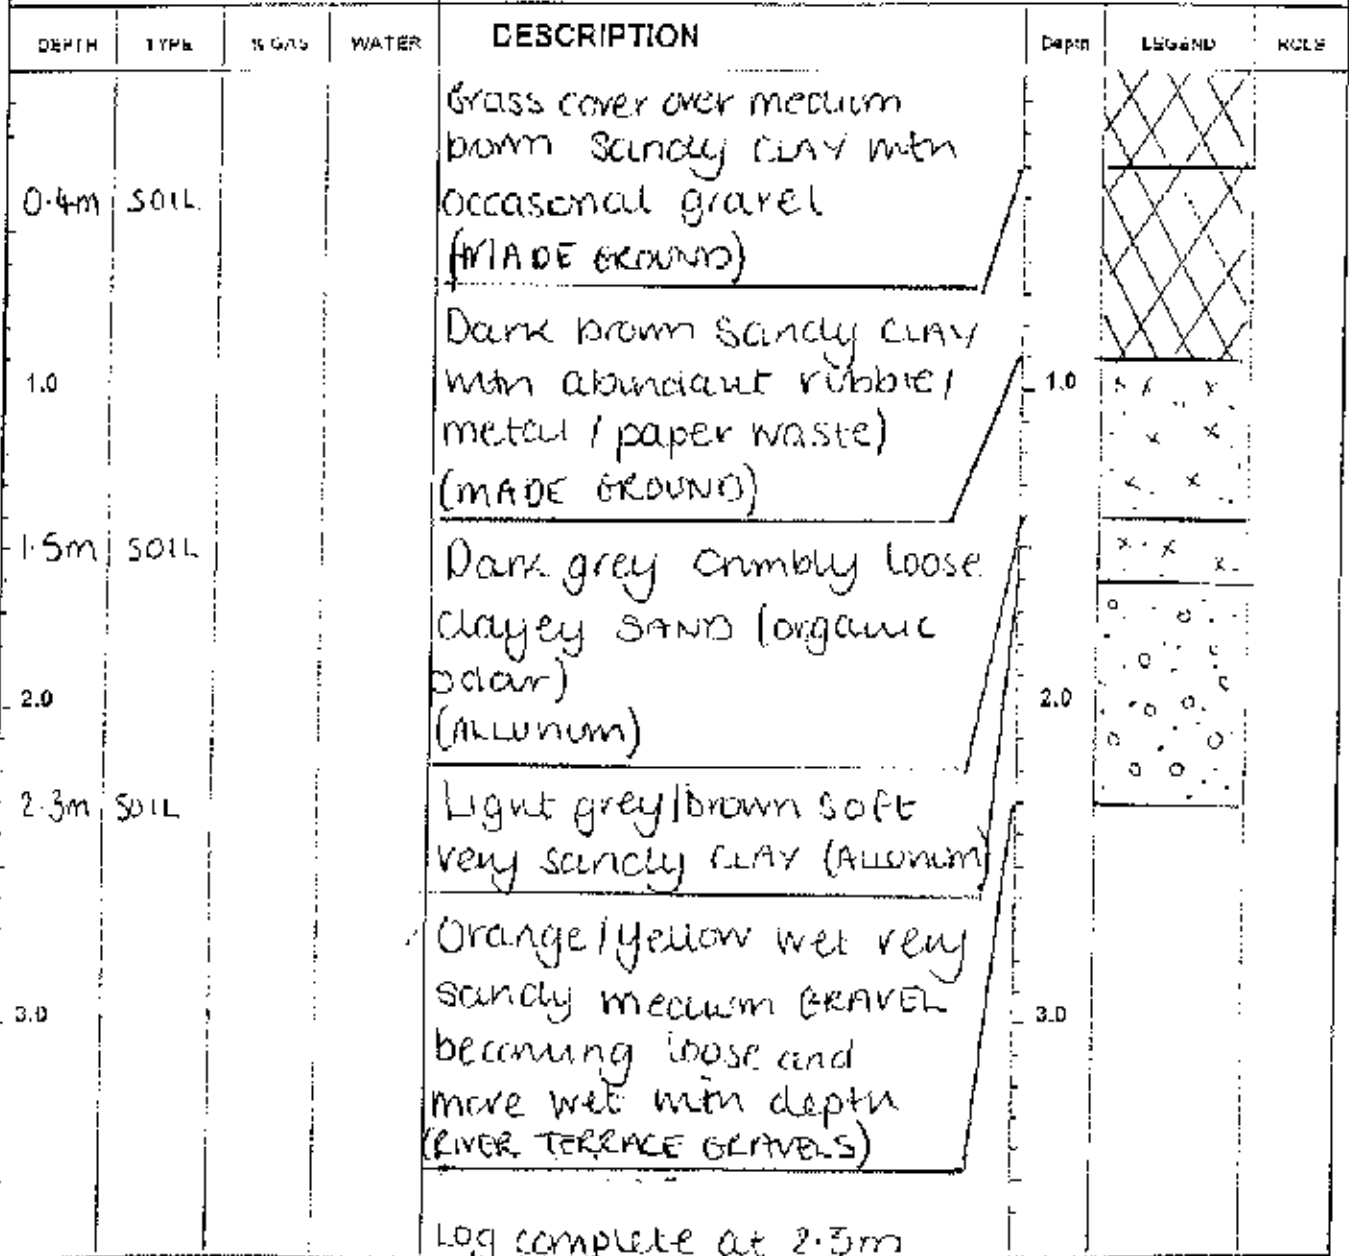 DEPTH TYPE % GAS WATER DESCRIPTION Depth LEGEND
Grass cover over medium
brown sandy CLAY with
0.4m SOIL occasional gravel
(MADE GROUND)
Dark brown sandy CLAY
1.0 with abundant rubble/ 1.0
metal / paper waste)
(MADE GROUND)
1.5m SOIL Dark grey crumbly loose
clayey SAND (organic
odour)
2.0 2.0
(ALLUVIUM)
2.3m SOIL Light grey/brown soft
very sandy CLAY (ALLUVIUM)
Orange/yellow wet very
sandy medium GRAVEL
3.0 3.0
becoming loose and
more wet with depth
(RIVER TERRACE GRAVELS)
Log complete at